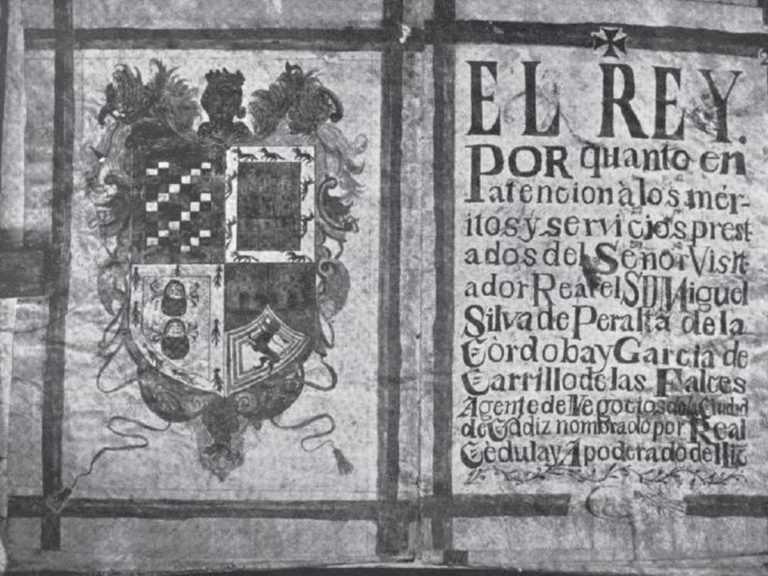 EL REY.
POR quanto en
atencion à los mér-
itos y servicios prest
ados del Señor Visit
ador Real el S.D. Miguel
Silva de Peralta de la
Còrdoba y Garcia de
Carrillo de las Falces
Agente de Negocios de la Ciudad
de Cadiz nombrado por Real
Cedula y Apoderado del